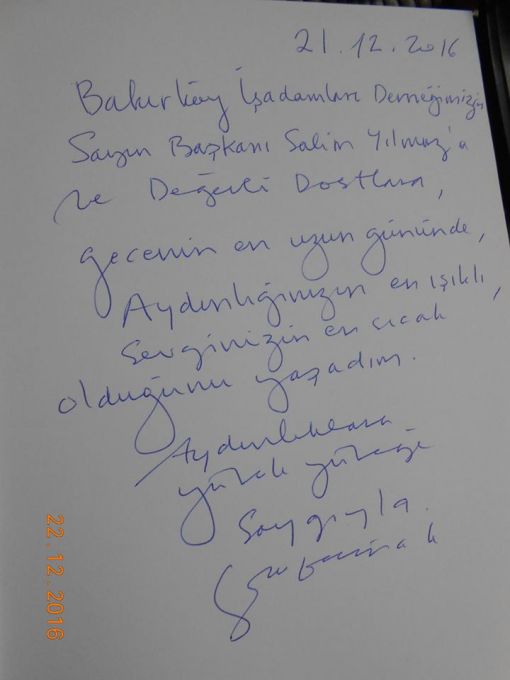 21.12.2016
Bakırköy İşadamları Derneğimizin
Sayın Başkanı Salim Yılmaz'a
ve Değerli Dostlara,
gecenin en uzun gününde,
Aydınlığınızın en ışıklı,
Sevginizin en sıcak
olduğunu yaşadım.
Aydınlıklara
yürek yüreğe
Saygıyla.
22.12.2016